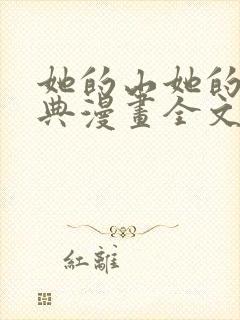 她的山她的
典漫畫全文
紅離